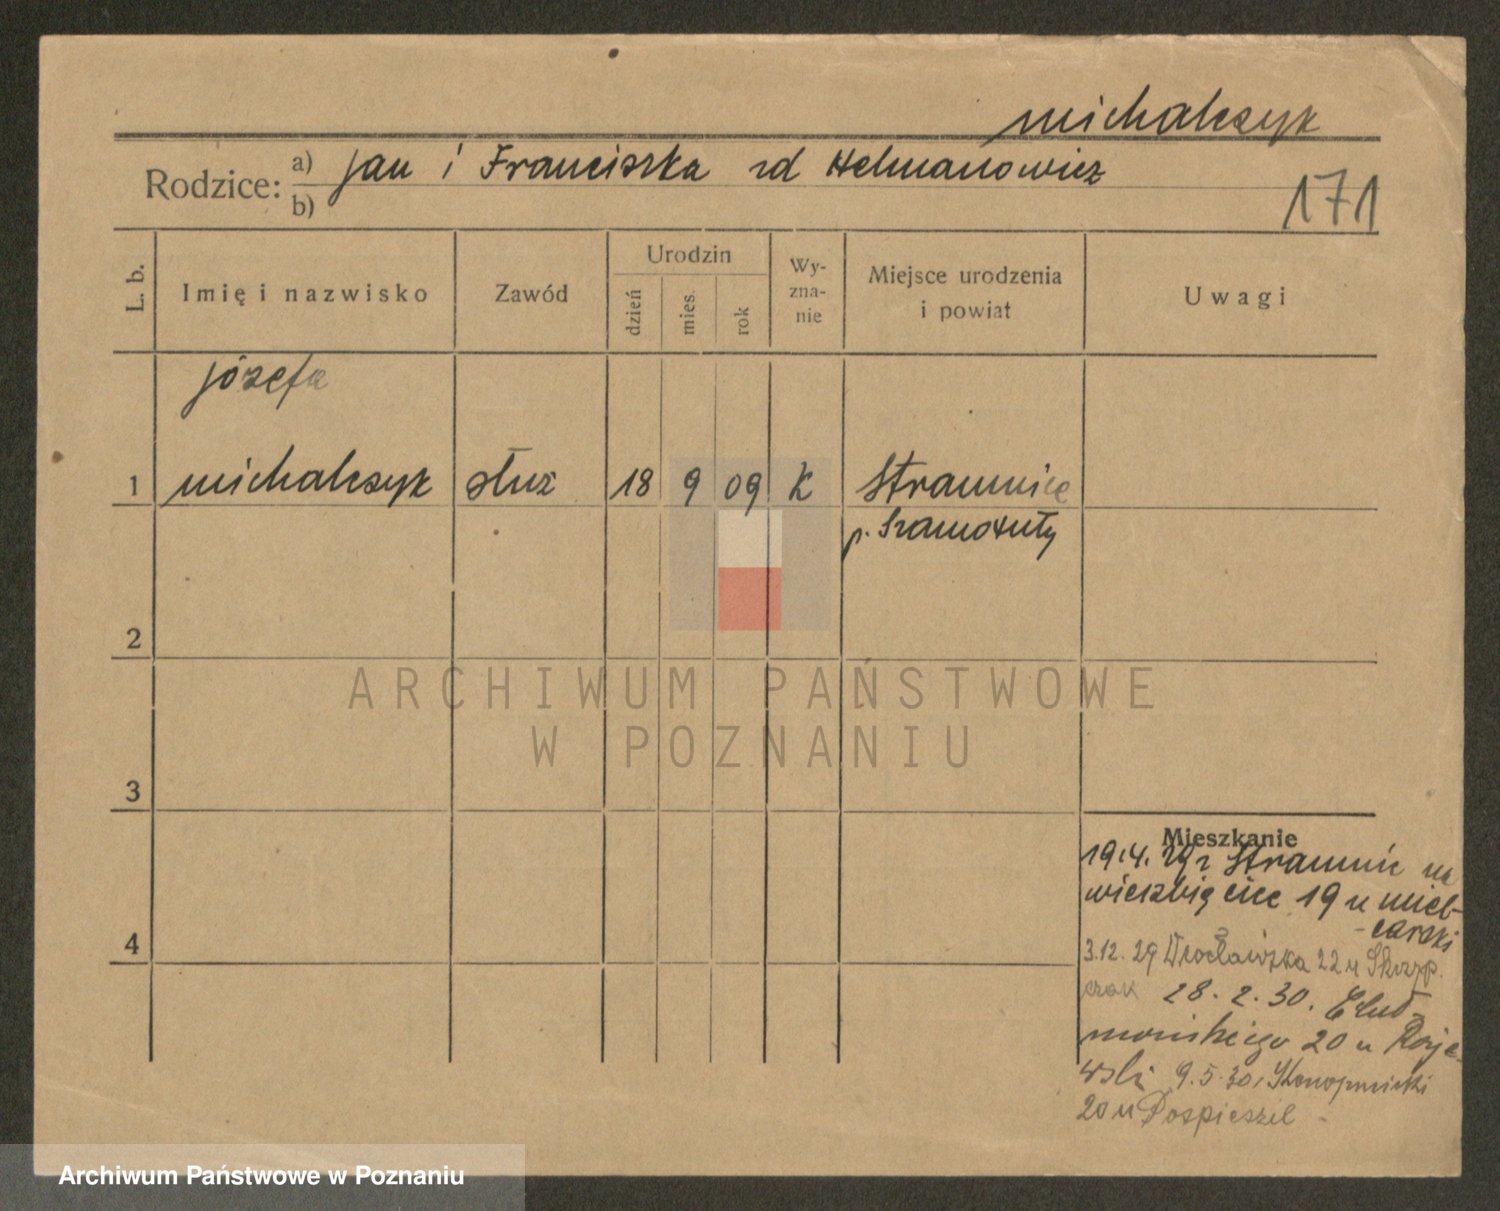 michalczyk
Rodzice: a) Jan i Franciszka zd Helmanowicz
b)
171
L. b.
Imię i nazwisko
Zawód
Urodzin
dzień
mies.
rok
Wy-
zna-
nie
Miejsce urodzenia
i powiat
Uwagi
Józefa
1 michalczyk służ 18 9 09 K Stramnice
p. Szamotuły
2
3
4
ARCHIWUM PAŃSTWOWE
W POZNANIU
Mieszkanie
19.4.29 z Stramnic na
wierzbięcice 19 u mieł-
-carski
3.12.29 Wrocławska 22 u Skrzyp.
czak 28.2.30.
20 u Raje-
wski 9.5.30. Konopnickiej
20 u Pospieszil
Archiwum Państwowe w Poznaniu